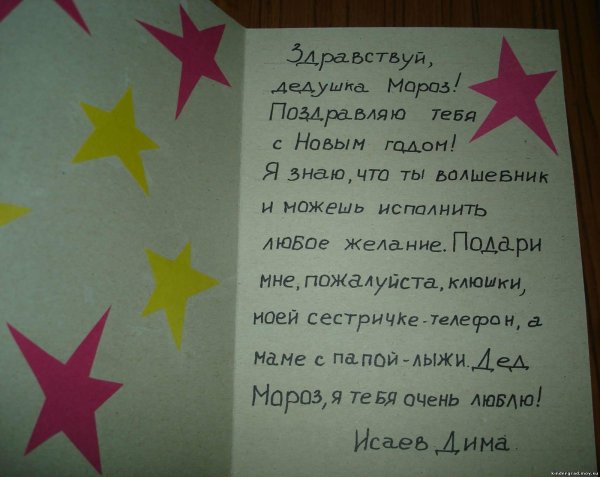 Здравствуй,
дедушка Мороз!
Поздравляю тебя
с Новым годом!
Я знаю, что ты волшебник
и можешь исполнить
любое желание. Подари
мне, пожалуйста, клюшки,
моей сестричке-телефон, а
маме с папой-лыжи. Дед
Мороз, я тебя очень люблю!
Исаев Дима.
kindergrad.moy.su